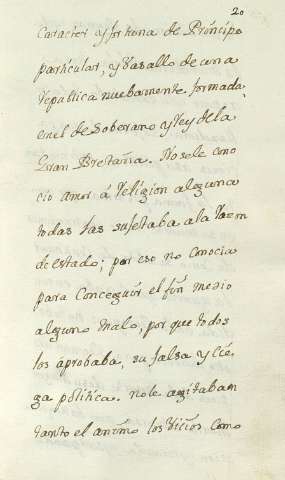 20
Caracter y fortuna de Principe
particular, y Vasallo de una
Republica nuebamente formada,
en el de Soberano y Rey de la
Gran Bretaña. No se le cono
cio amor á Religion alguna
todas las sujetaba a la razon
de estado; por eso no Conocia
para Conceguir el fin medio
alguno malo, por que todos
los aprobaba, su falsa y Cie
ga politica. no le agitaban
tanto el animo los Vicios, como